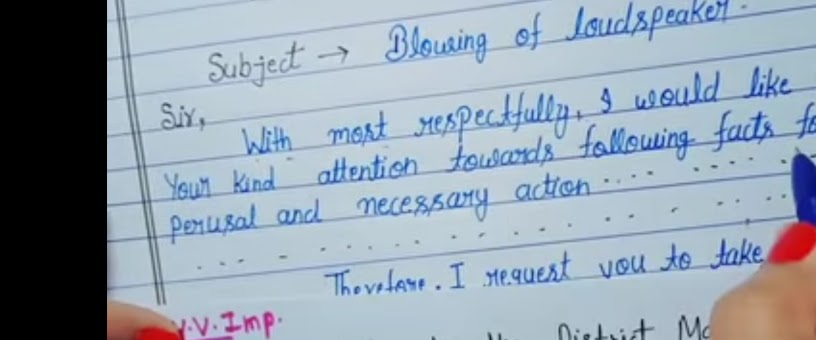 Subject → Blowing of loudspeaker.
Sir,
With most respectfully, I would like
Your kind attention towards following facts fo
perusal and necessary action ....
Therefore. I request you to take
V.V. Imp.
District Ma